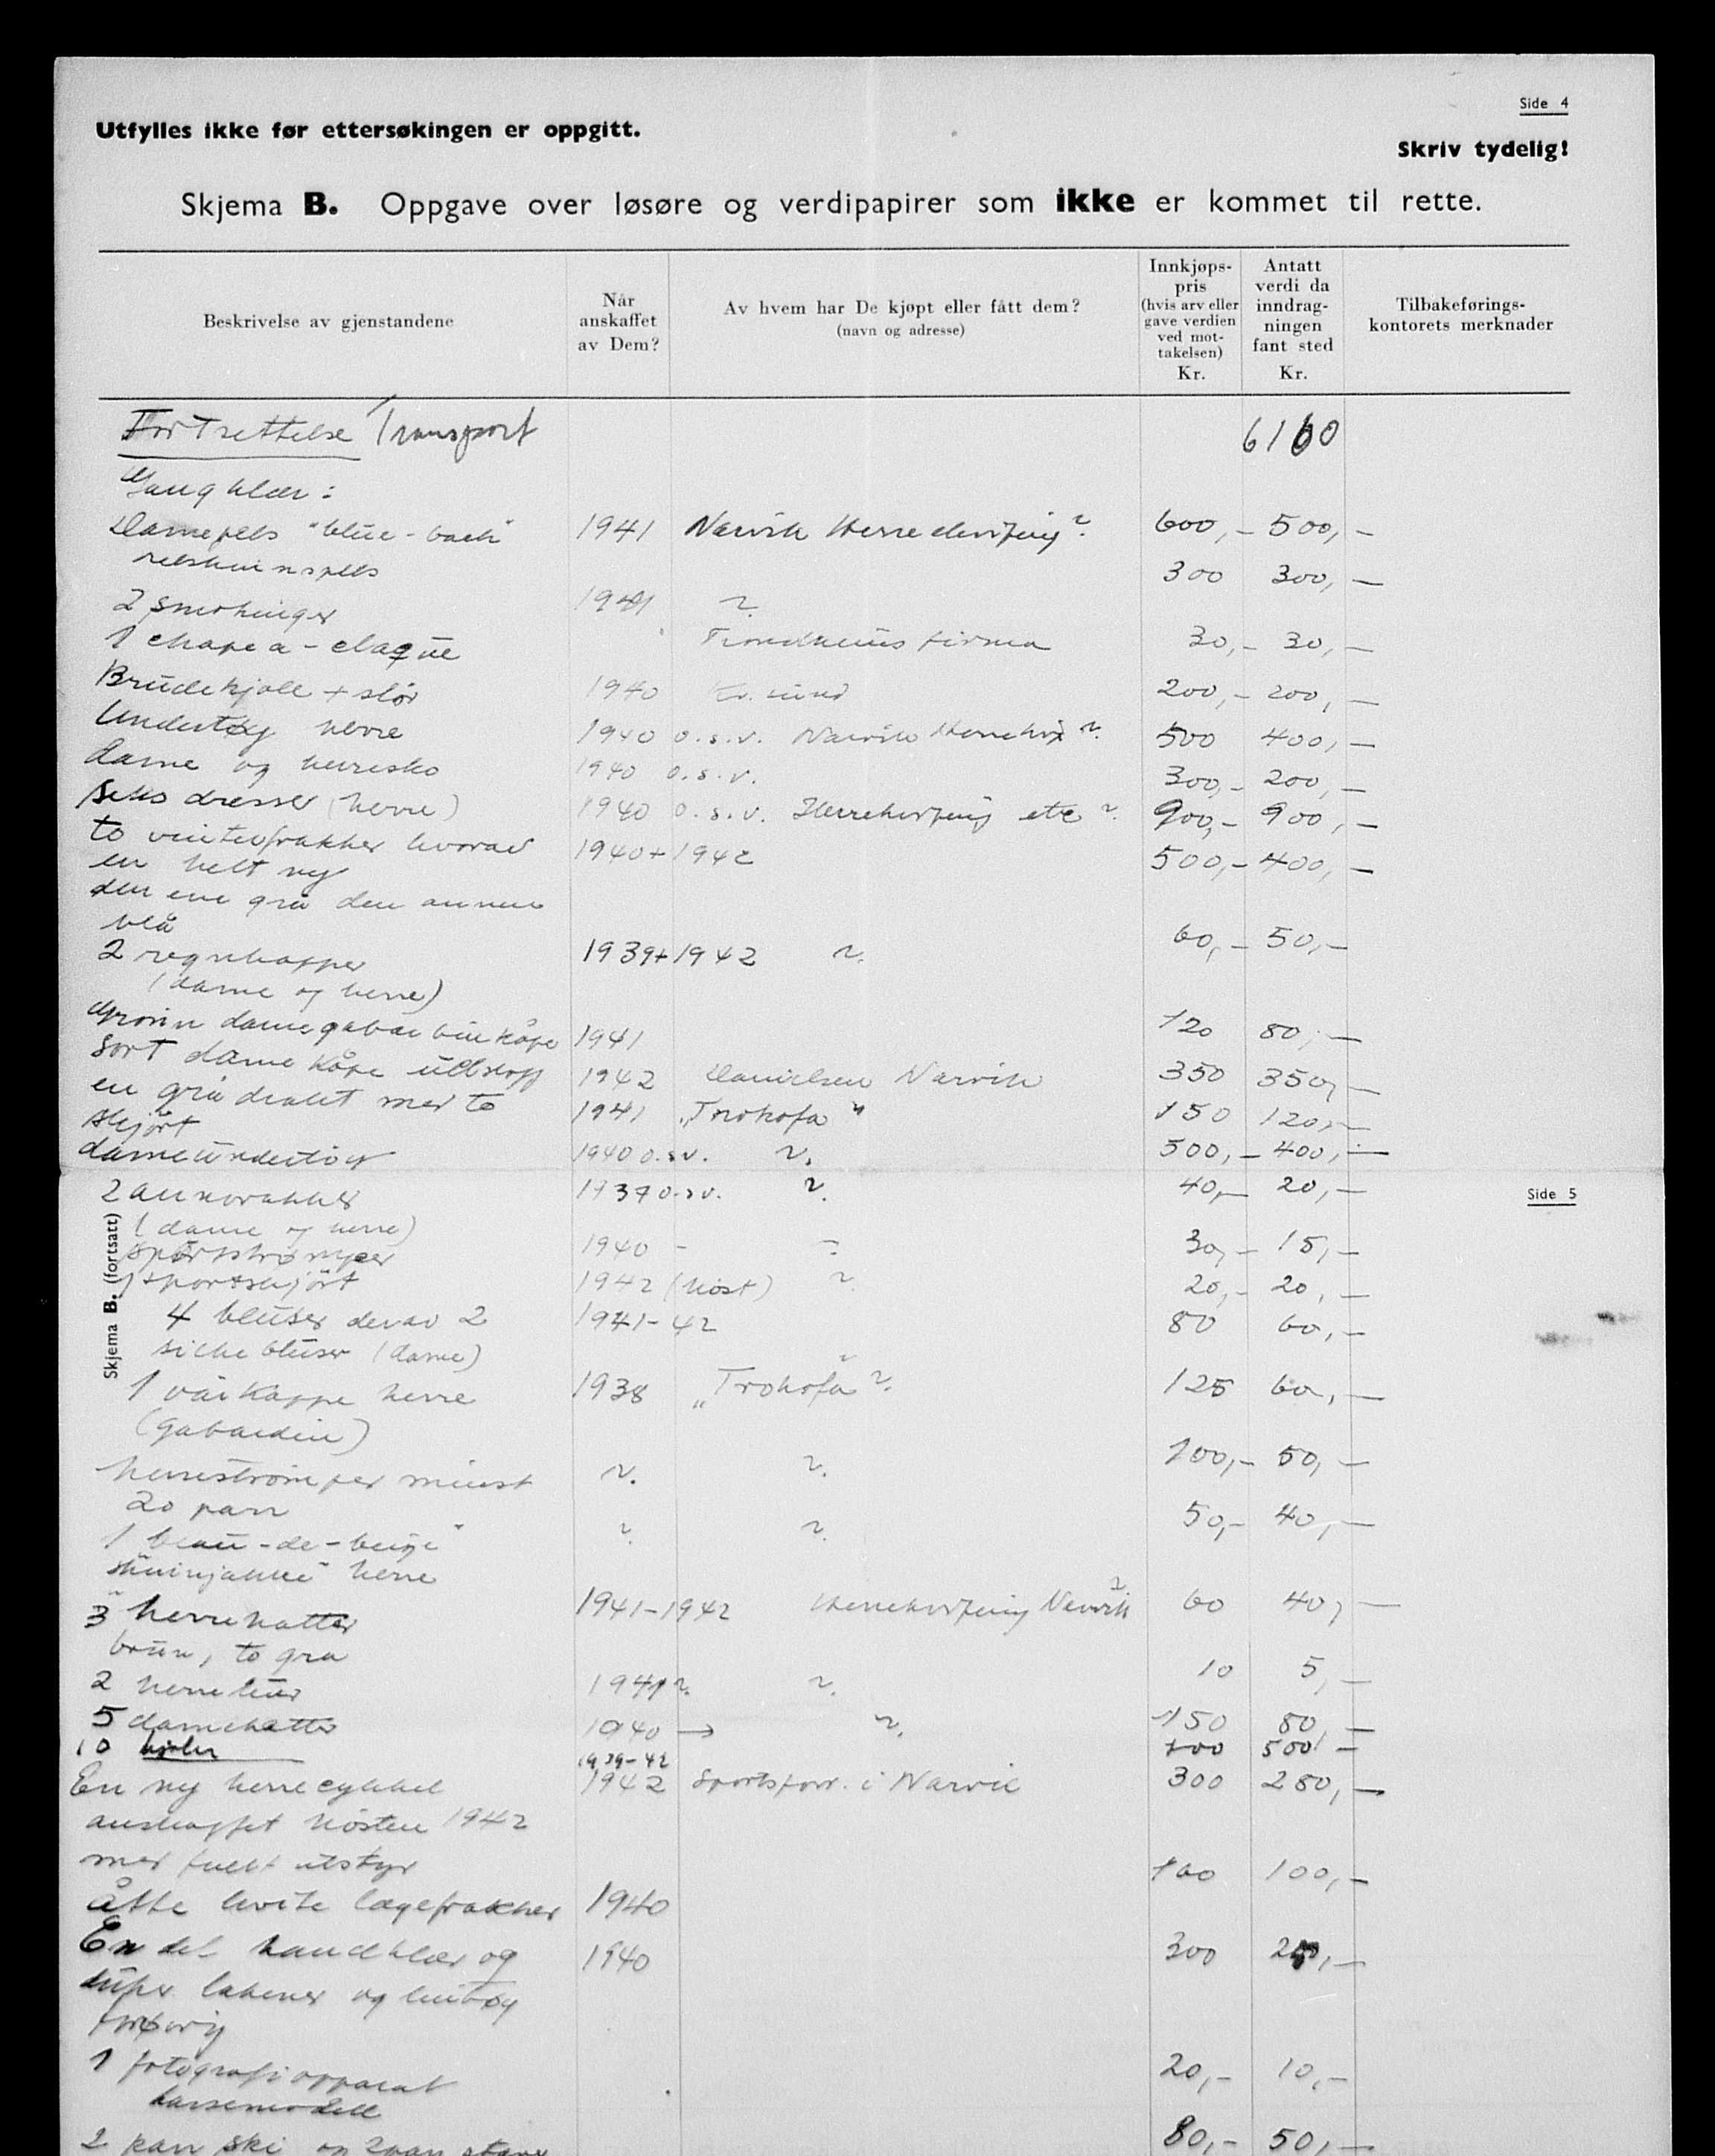 Side 4
Utfylles ikke før ettersøkingen er oppgitt.
Skriv tydelig!
Skjema B. Oppgave over løsøre og verdipapirer som ikke er kommet til rette.
Beskrivelse av gjenstandene
Når anskaffet av Dem?
Av hvem har De kjøpt eller fått dem? (navn og adresse)
Innkjøpspris (hvis arv eller gave verdien ved mottakelsen) Kr.
Antatt verdi da inndragningen fant sted Kr.
Tilbakeføringskontorets merknader
Fortsettelse Transport 6160
Gangklær:
Damepels "blue-back" 1941 Narvik Herreekvipering? 600,- 500,-
selskinnspels
2 smokinger 1941 ? 300 300,-
1 chapea-claque Trondheims firma 30,- 30,-
Brudekjole + slør 1940 Kr.sund 200,- 200,-
Undertøy herre 1940 o.s.v. Narvik ? 500 400,-
dame og herresko 1940 o.s.v. 300,- 200,-
seks dresser (herre) 1940 o.s.v. Herrekvipering etc ? 900,- 900,-
to vinterfrakker hvorav 1940+1942 500,- 400,-
en helt ny
den ene grå den annen
blå
2 regnkapper 1939+1942 ? 60,- 50,-
(dame og herre)
dame kåpe 1941 120 80,-
Sort dame kåpe ullstoff 1942 Danielsen Narvik 350 350,-
en grå drakt med to 1941 "Trokofa" 150 120,-
skjørt
dameundertøy 1940 o.s.v. ? 500,- 400,-
2 annorakker 1937 o.s.v. ? 40,- 20,-
Side 5
Skjema B. (fortsatt)
(dame og herre)
sportstrømper 1940 - - 30,- 15,-
1 sportskjört 1942 (høst) ? 20,- 20,-
4 bluser derav 2 1941-42 80 60,-
silkebluser (dame)
1 vårkappe herre 1938 "Trokofa" ? 125 60,-
(gabardin)
herrestrømper minst ? ? 100,- 50,-
20 par
1 beau-de-beige" ? ? 50,- 40,-
skinnjakke" herre
3 herrehatter 1941-1942 Herrekvipering Narvik ? 60 40,-
brun, to grå
2 herreluer 1941 ? ? 10 5,-
5 damehatter 1940 → ? 150 80,-
10 kjoler 1939-42 500 -
En ny herrecykkel 1942 Sportsforr. i Narvik 300 280,-
anskaffet høsten 1942
med fullt utstyr
åtte hvite lægefrakker 1940 160 100,-
En del handklær og 1940 300
lakener og lintøy
forøvrig
1 fotografiapparat 20,- 10,-
kassemodell
2 par ski og 2 par staver 80,- 50,-